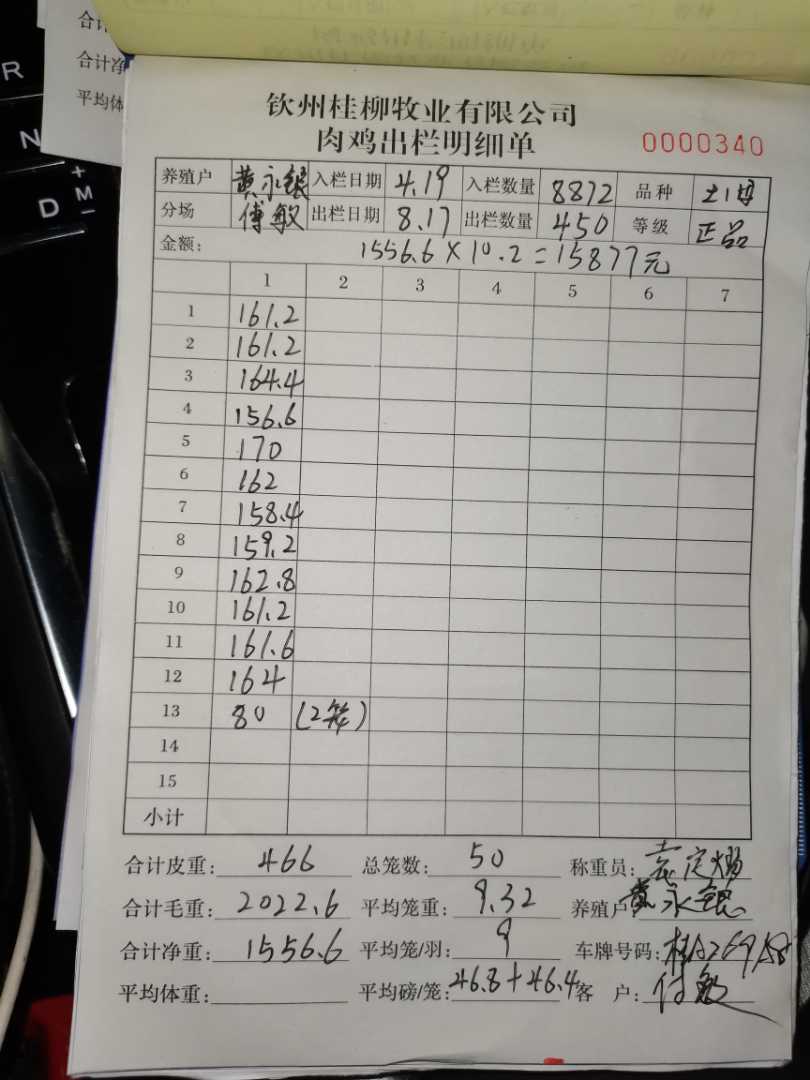 合计
合计净
平均体
R
N
D
+
M
-
钦州桂柳牧业有限公司
肉鸡出栏明细单
0000340
养殖户 黄永银 入栏日期 4.19 入栏数量 8872 品种
分场 傅敏 出栏日期 8.17 出栏数量 450 等级 正品
金额: 1556.6×10.2=15877元
1 2 3 4 5 6 7
1 161.2
2 161.2
3 164.4
4 156.6
5 170
6 162
7 158.4
8 159.2
9 162.8
10 161.2
11 161.6
12 164
13 80 (2笼)
14
15
小计
合计皮重: 466 总笼数: 50 称重员:
合计毛重: 2022.6 平均笼重: 9.32 养殖户 黄永银
合计净重: 1556.6 平均笼/羽: 9 车牌号码:
平均体重: 平均磅/笼: 46.8+46.4 客 户: 付敏